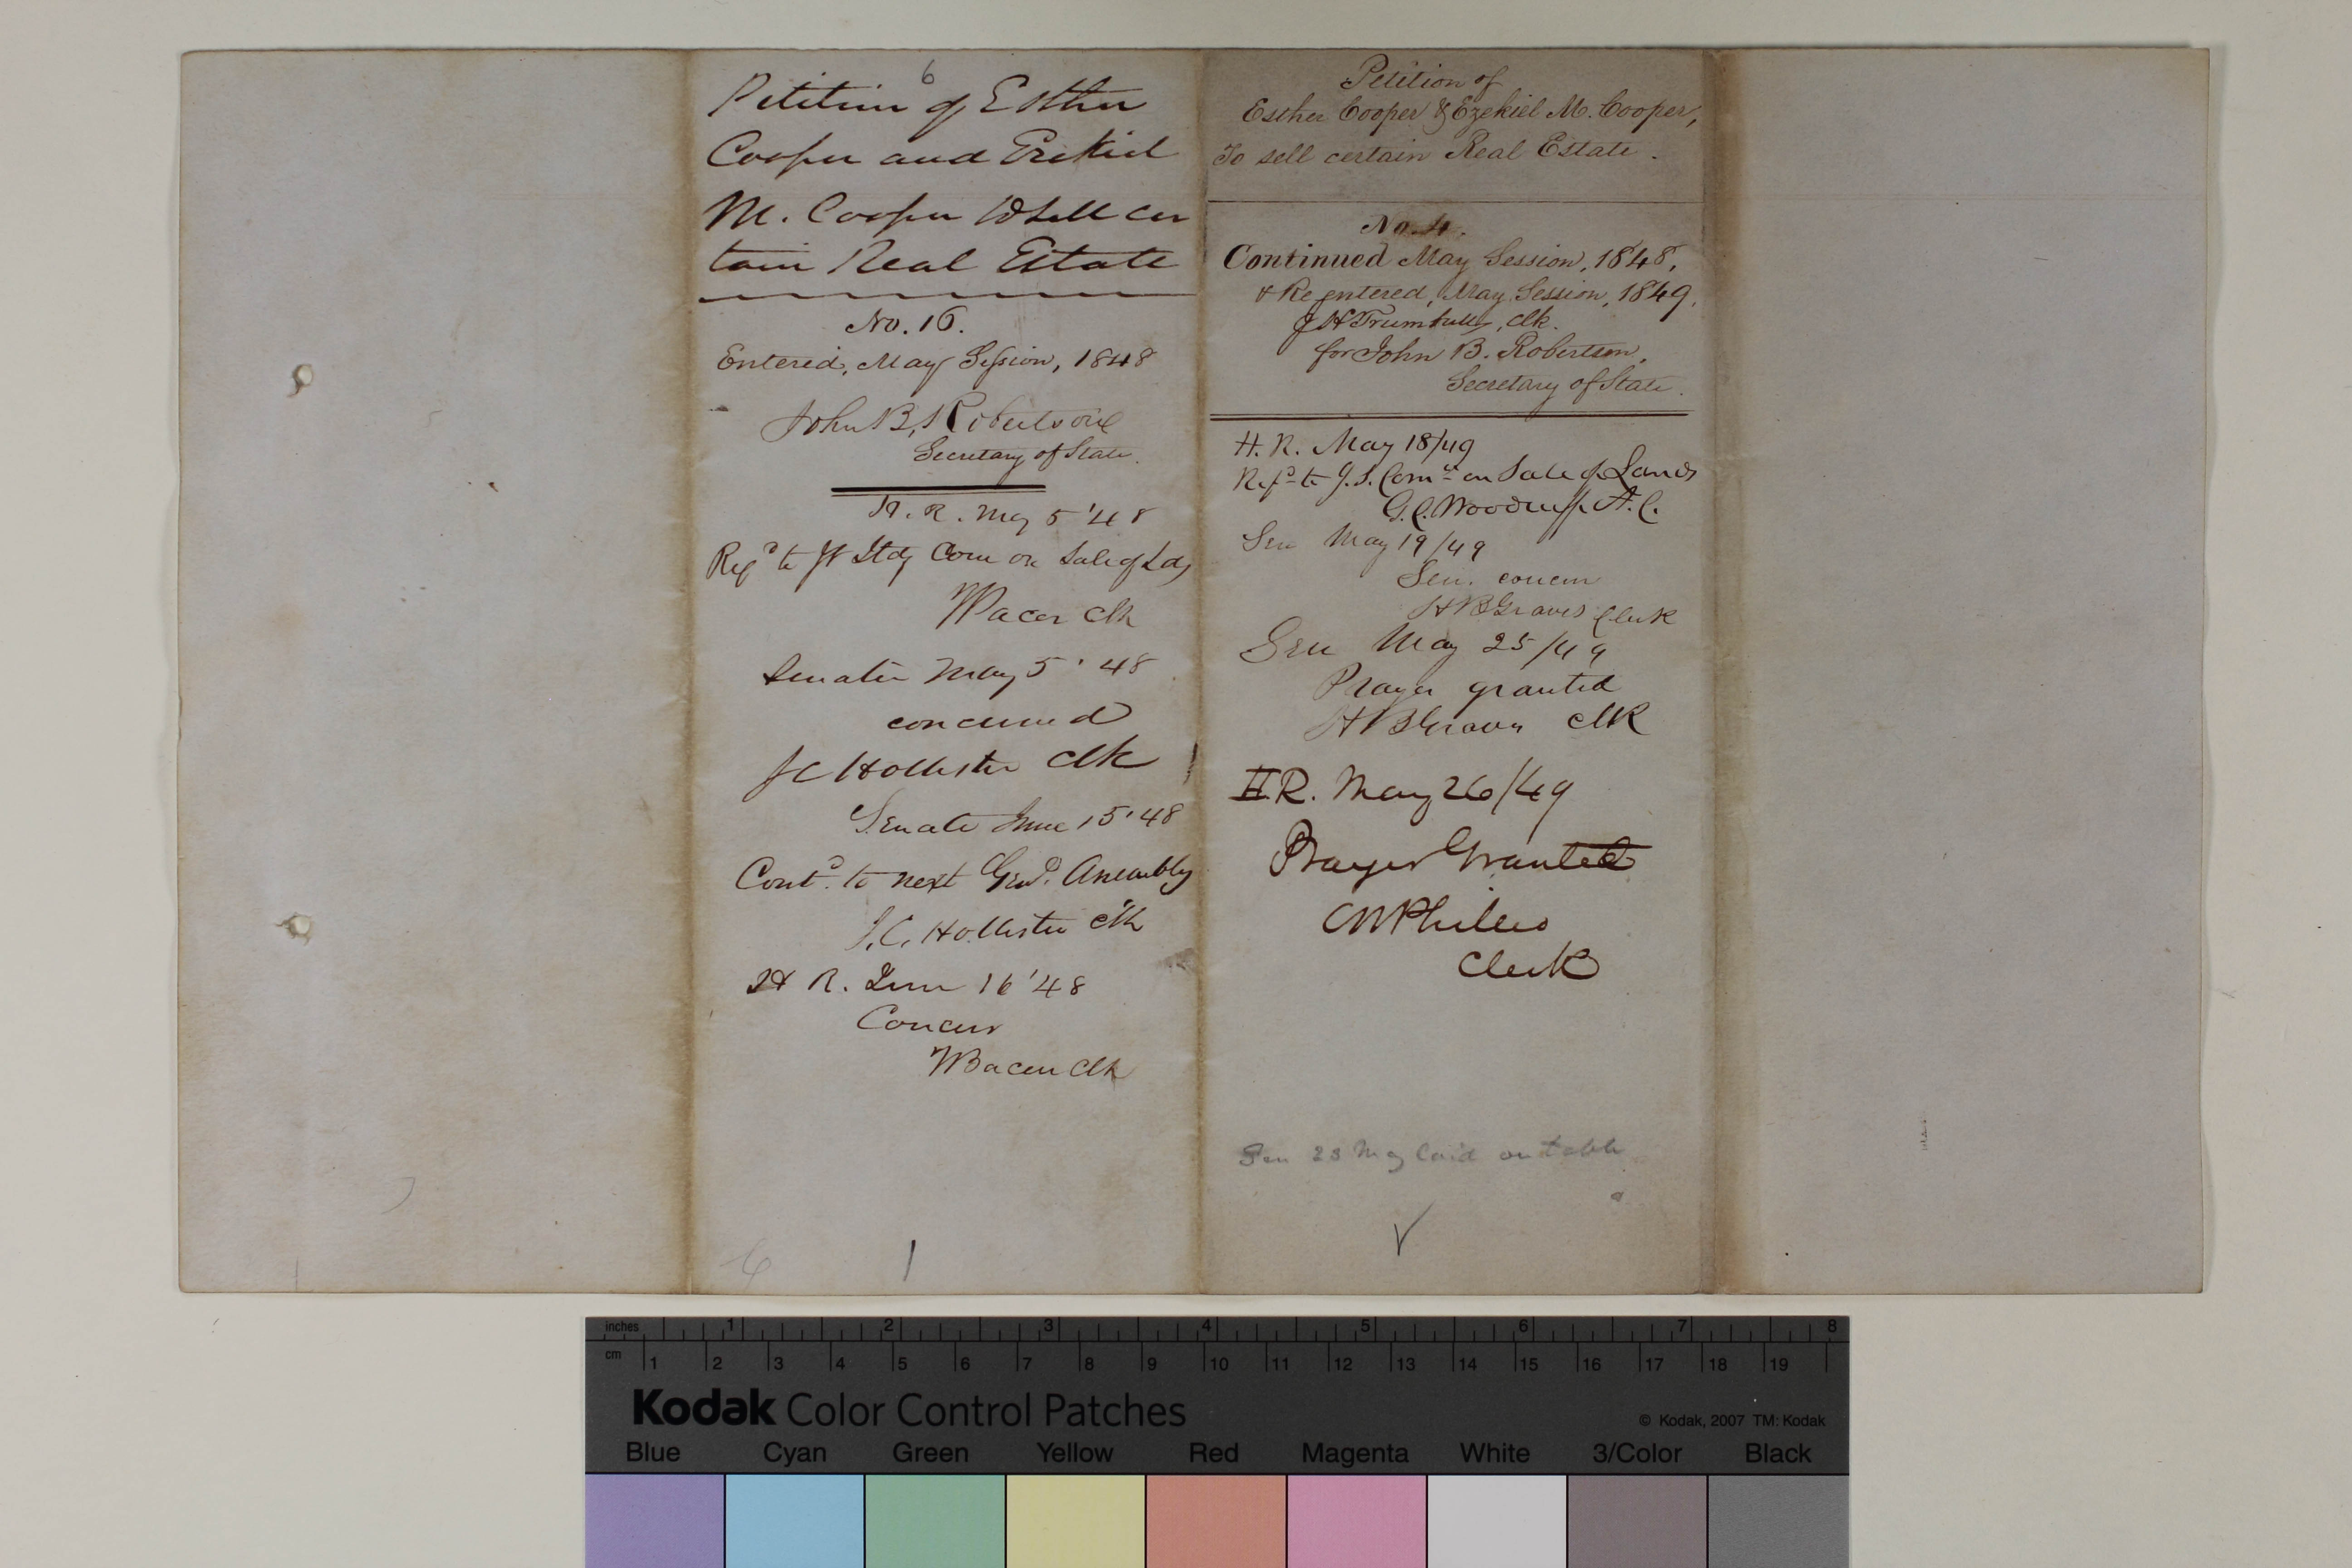 6
Petition of Esther
Cooper and Ezekiel
M. Cooper to sell cer
tain Real Estate
No. 16.
Entered, May Session, 1848
John B. Robertson
Secretary of State.
H. R. May 5 '48
Refd to Jt Stdg Com on Sale of Lds
Clk
Senate May 5 '48
concurred
J C Hollister Clk
Senate June 15 '48
Contd. to next Genl. Assembly
J. C. Hollister Clk
H R. June 16 '48
Concur
Bacon Clk
1
Petition of
Esther Cooper & Ezekiel M. Cooper,
To sell certain Real Estate.
No. 4.
Continued May Session, 1848,
& Re entered, May Session, 1849,
J H Trumbull, Clk.
for John B. Robertson,
Secretary of State.
H. R. May 18/49
Refd to J. S. Come on Sale of Lands
G. C. Woodruff A. C.
Sen May 19/49
Sen. concur
H B Graves Clerk
Sen May 25/49
Prayer granted
H B Graves Clk
H.R. May 26/49
Prayer Granted
Clerk
Sen 23 May laid on table
inches 1 2 3 4 5 6 7 8
cm 1 2 3 4 5 6 7 8 9 10 11 12 13 14 15 16 17 18 19
Kodak Color Control Patches
© Kodak, 2007 TM: Kodak
Blue Cyan Green Yellow Red Magenta White 3/Color Black